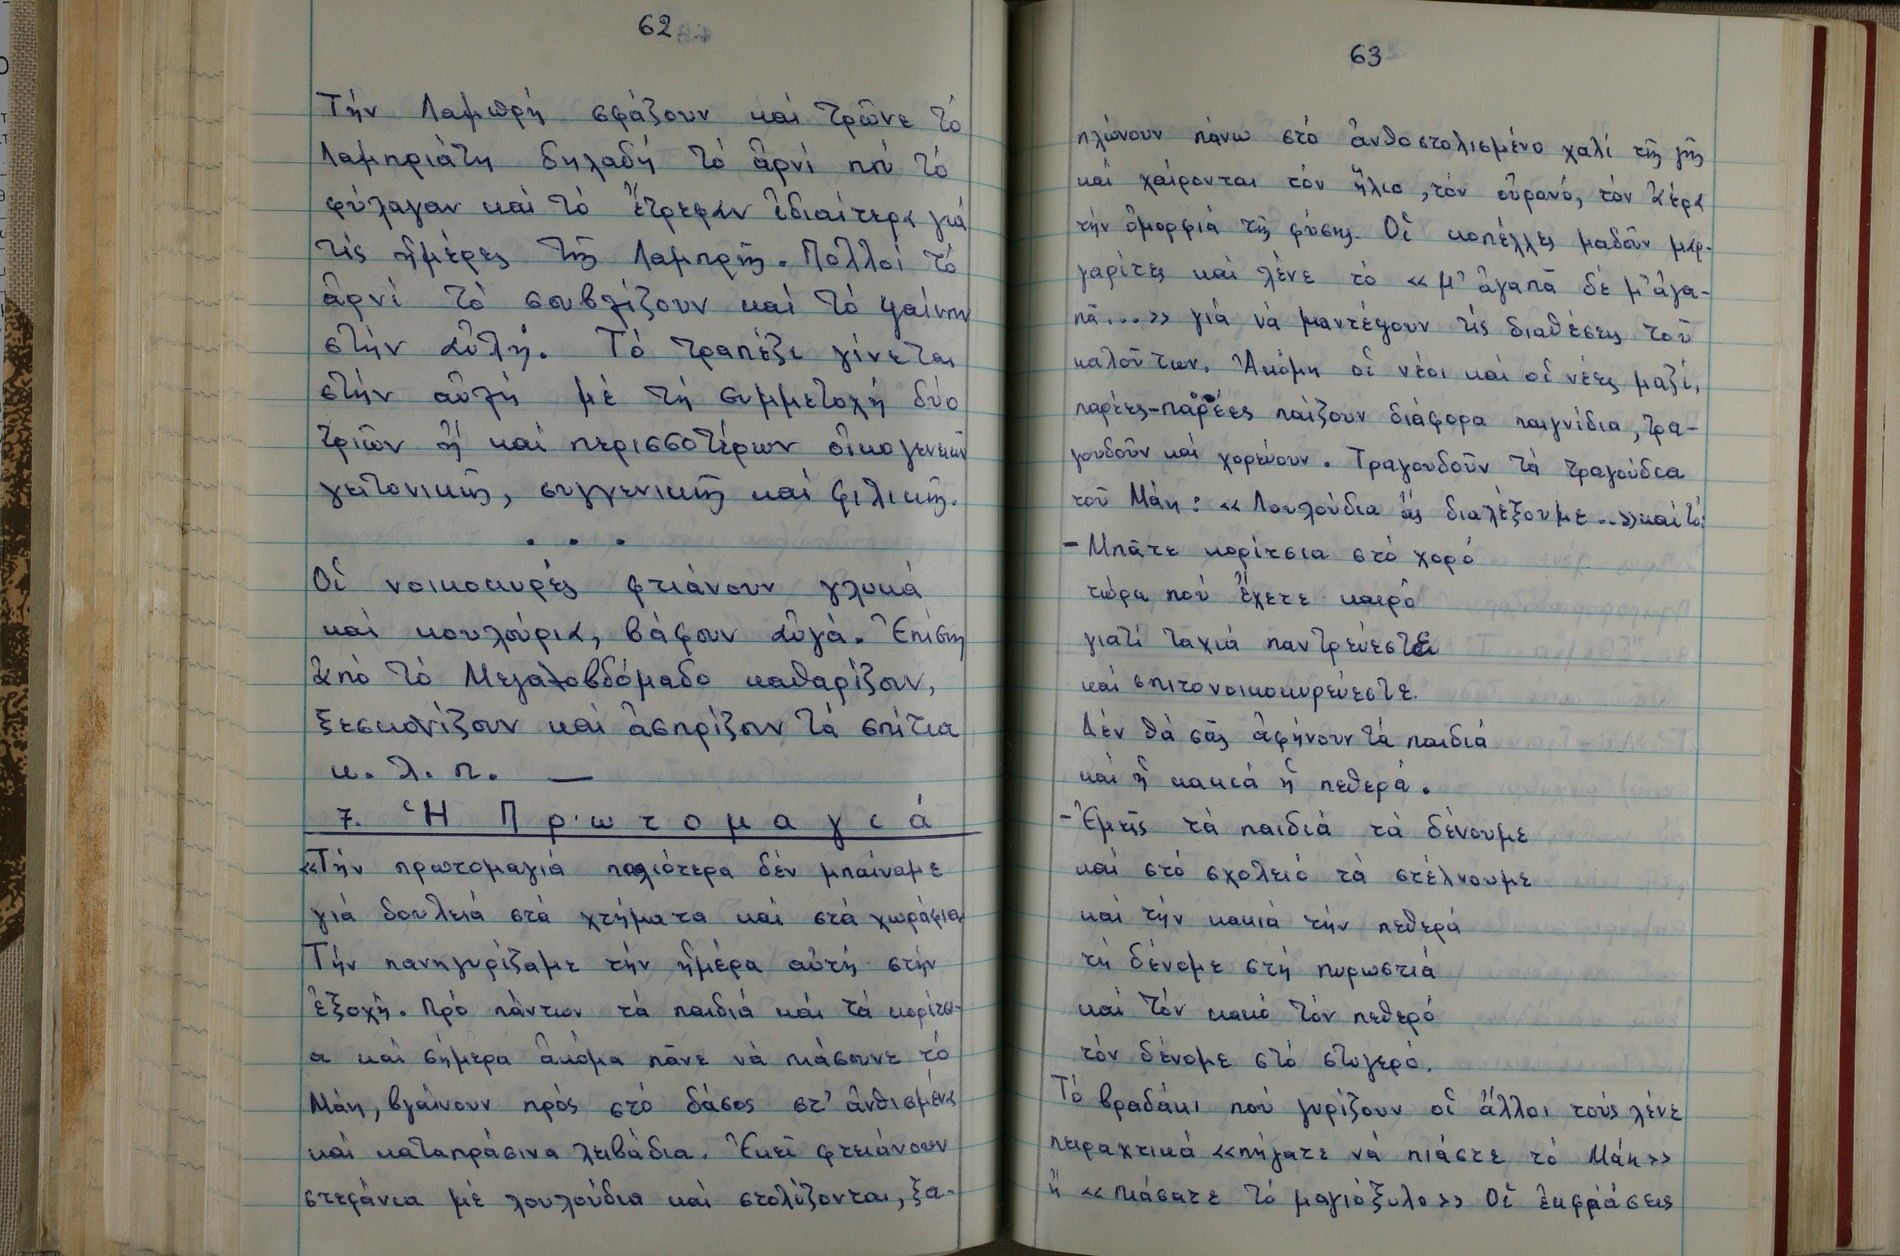 62
Τήν Λαμπρή σφάζουν καί τρῶνε τό
Λαμπριάτη δηλαδή τό ἀρνί πού τό
φύλαγαν καί τό ἔτρεφαν ἰδιαίτερα γιά
τίς ἡμέρες τῆς Λαμπρῆς. Πολλοί τό
ἀρνί τό σουβλίζουν καί τό ψαίνουν
στήν αὐλή. Τό τραπέζι γίνεται
στήν αὐλή μέ τή συμμετοχή δύο
τριῶν ἤ καί περισσοτέρων οἰκογενειῶν
γειτονικῆς, συγγενικῆς καί φιλικῆς.
. . .
Οἱ νοικοκυρές φτιάνουν γλυκά
καί κουλούρια, βάφουν αὐγά. Ἐπίσης
ἀπό τό Μεγαλοβδόμαδο καθαρίζουν,
ξεσκονίζουν καί ἀσπρίζουν τά σπίτια
κ.λ.π. —
7. Ἡ Πρωτομαγιά
«Τήν πρωτομαγιά παλιότερα δέν μπαίναμε
γιά δουλειά στά χτήματα καί στά χωράφια.
Τήν πανηγυρίζαμε τήν ἡμέρα αὐτή στήν
ἐξοχή. Πρό πάντων τά παιδιά καί τά κορίτσι-
α καί σήμερα ἀκόμα πᾶνε νά πιάσουνε τό
Μάη, βγαίνουν πρός στό δάσος στ' ἀνθισμένα
καί καταπράσινα λιβάδια. Ἐκεῖ φτειάνουν
στεφάνια μέ λουλούδια καί στολίζονται, ξα-
63
πλώνουν πάνω στό ἀνθοστολισμένο χαλί τῆς γῆς
καί χαίρονται τόν ἥλιο, τόν οὐρανό, τόν ἀέρα
τήν ὀμορφιά τῆς φύσης. Οἱ κοπέλλες μαδοῦν μαρ-
γαρίτες καί λένε τό «μ' ἀγαπᾶ δέ μ' ἀγα-
πᾶ...» γιά νά μαντέψουν τίς διαθέσεις τοῦ
καλοῦ των. Ἀκόμη οἱ νέοι καί οἱ νέες μαζί,
παρέες-παρέες παίζουν διάφορα παιγνίδια, τρα-
γουδοῦν καί χορεύουν. Τραγουδοῦν τά τραγούδια
τοῦ Μάη: «Λουλούδια ἄς διαλέξουμε..» καί τό:
- Μπᾶτε κορίτσια στό χορό
τώρα πού ἔχετε καιρό
γιατί ταχιά παντρεύεστε
καί σπιτονοικοκυρεύεστε.
Δέν θά σᾶς ἀφήνουν τά παιδιά
καί ἡ κακιά ἡ πεθερά.
- Ἐμεῖς τά παιδιά τά δένουμε
καί στό σχολειό τά στέλνουμε
καί τήν κακιά τήν πεθερά
τή δένομε στή πυρωστιά
καί τόν κακό τόν πεθερό
τόν δένομε στό στυγερό.
Τό βραδάκι πού γυρίζουν οἱ ἄλλοι τούς λένε
πειραχτικά «πήγατε νά πιάστε τό Μάη»
ἤ «πιάσατε τό μαγιόξυλο» Οἱ ἐκφράσεις